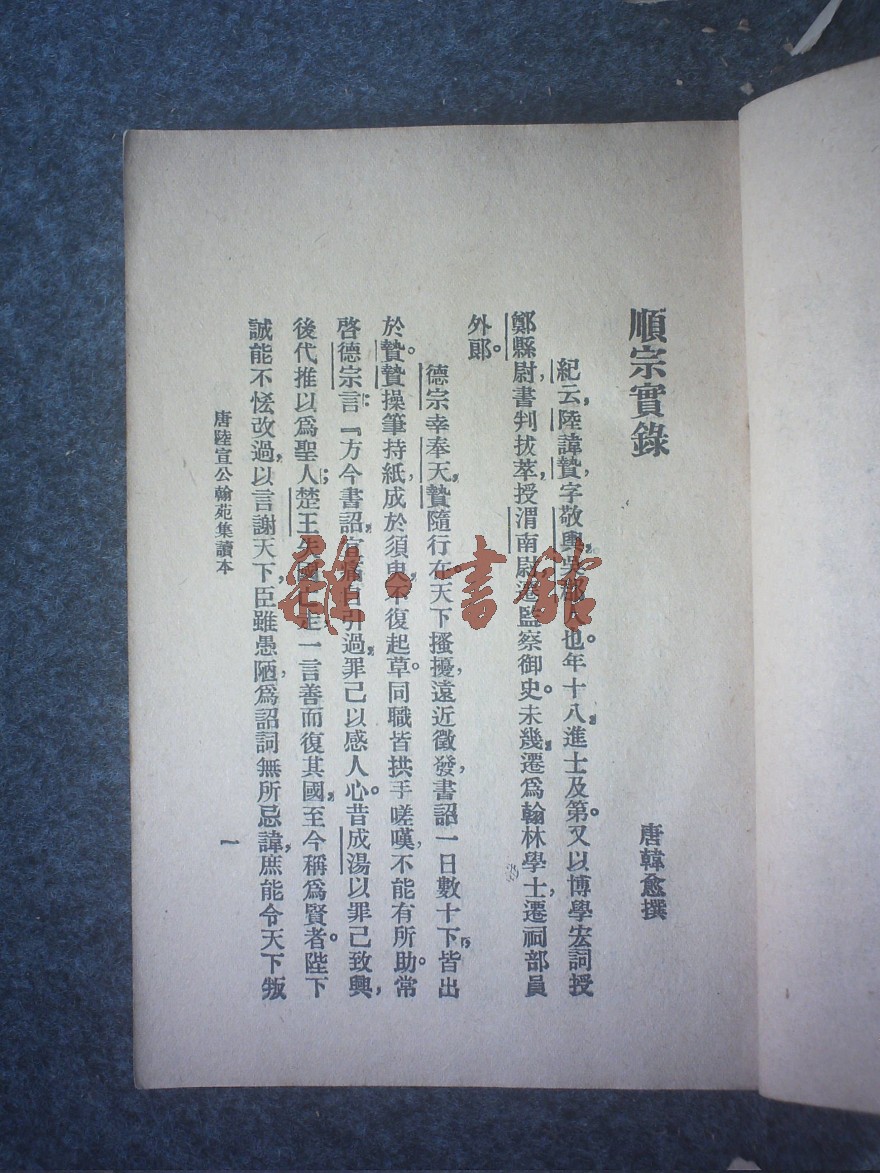 順宗實錄
唐韓愈撰
紀云，陸諱贄，字敬輿，吳郡人也。年十八，進士及第。又以博學宏詞授
鄭縣尉，書判拔萃，授渭南尉，遷監察御史。未幾，遷爲翰林學士，遷祠部員
外郞。
德宗幸奉天，贄隨行在，天下搔擾，遠近徵發，書詔一日數十下，皆出
於贄。贄操筆持紙，成於須臾，不復起草。同職皆拱手嗟嘆，不能有所助。常
啓德宗言：『方今書詔，宜痛自引過，罪己以感人心。昔成湯以罪己致興，
後代推以爲聖人；楚王失國亡走，一言善而復其國，至今稱爲賢者。陛下
誠能不恡改過，以言謝天下，臣雖愚陋，爲詔詞無所忌諱，庶能令天下叛
唐陸宣公翰苑集讀本
一
雜·書館